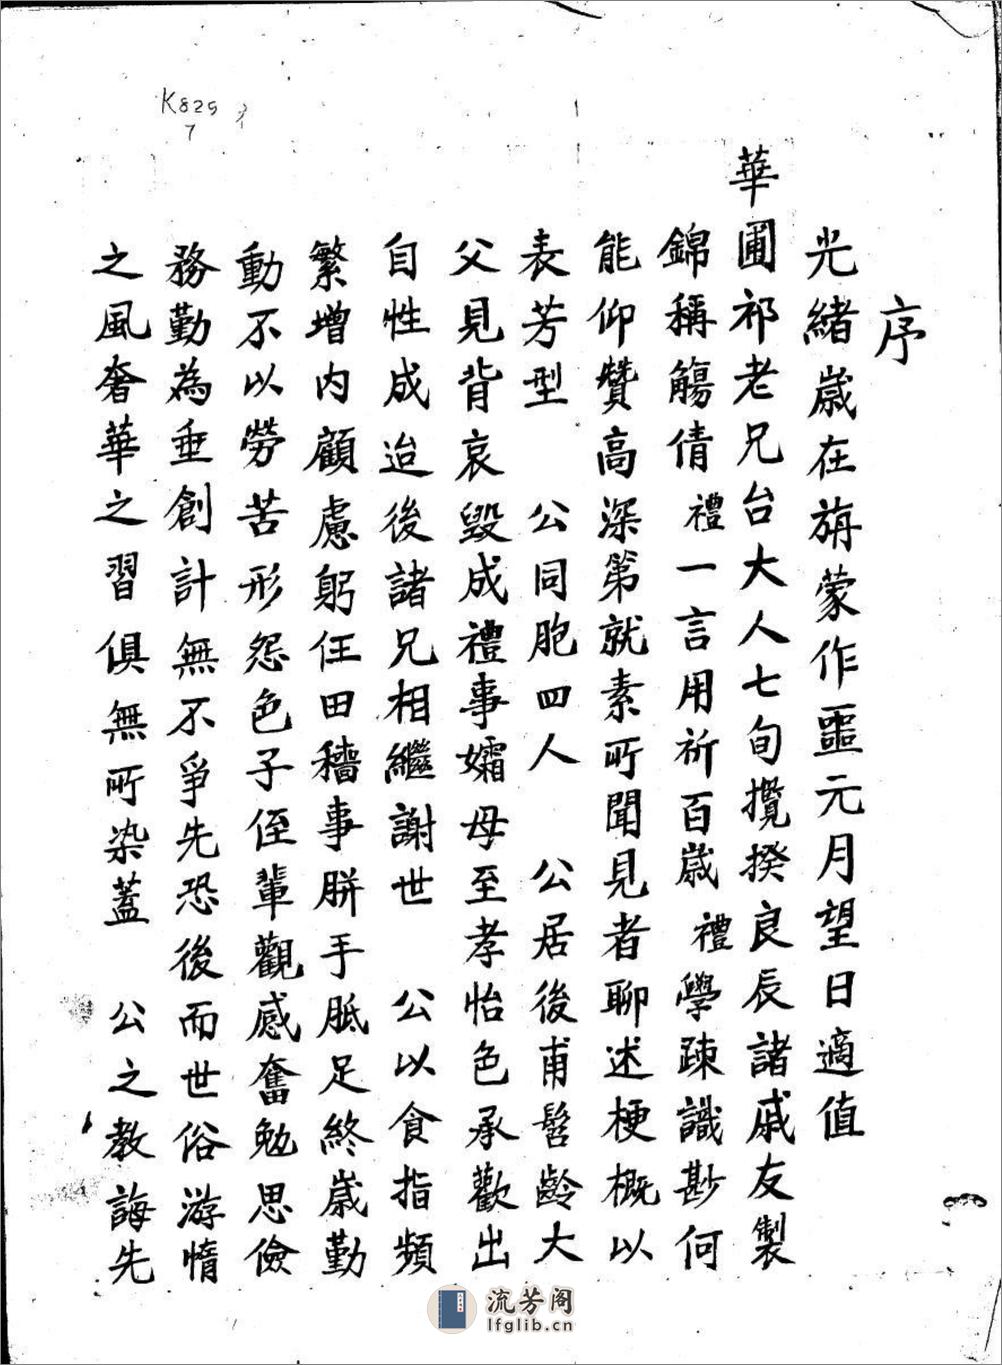 K825
7
序
光緒歲在旃蒙作噩元月望日適值
華圃祁老兄台大人七旬攬揆良辰諸戚友製
錦稱觴倩禮一言用祈百歲禮學疎識尠何
能仰贊高深第就素所聞見者聊述梗概以
表芳型 公同胞四人 公居後甫髫齡大
父見背哀毀成禮事孀母至孝怡色承歡出
自性成迨後諸兄相繼謝世 公以食指頻
繁增內顧慮躬任田穡事胼手胝足終歲勤
動不以勞苦形怨色子侄輩觀感奮勉思儉
務勤為垂創計無不爭先恐後而世俗游惰
之風奢華之習俱無所染蓋 公之教誨先
流芳阁
lfglib.cn